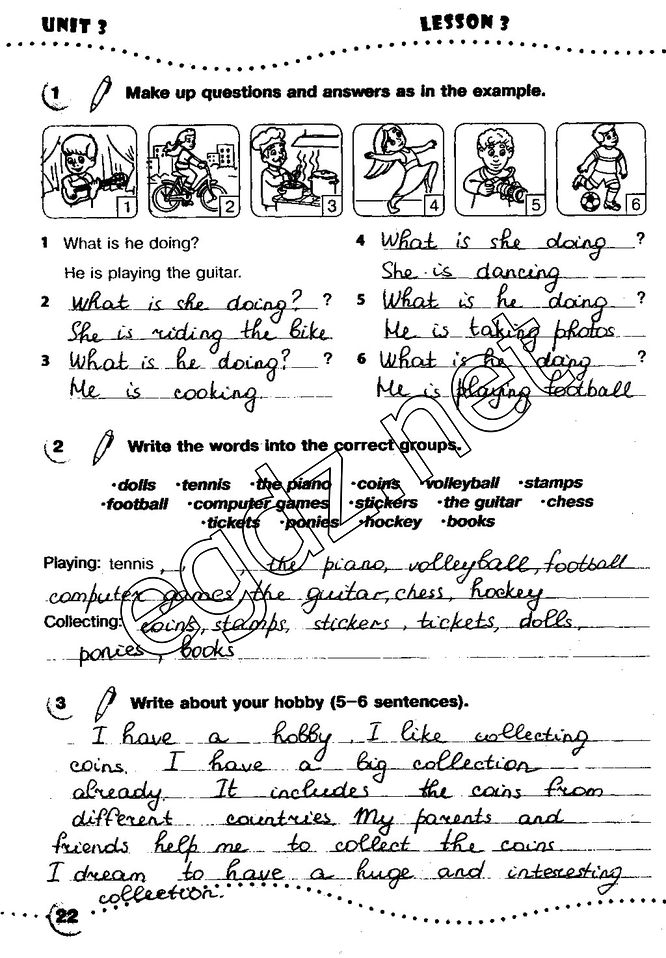 UNIT 3 LESSON 3
1 Make up questions and answers as in the example.
1 2 3 4 5 6
1 What is he doing?
He is playing the guitar.
2 What is she doing? ?
She is riding the bike
3 What is he doing? ?
He is cooking
4 What is she doing ?
She is dancing
5 What is he doing ?
He is taking photos
6 What is he doing ?
He is playing football
2 Write the words into the correct groups.
•dolls •tennis •the piano •coins •volleyball •stamps
•football •computer games •stickers •the guitar •chess
•tickets •ponies •hockey •books
Playing: tennis, , , the piano, volleyball, football
computer games, the guitar, chess, hockey
Collecting: coins, stamps, stickers, tickets, dolls,
ponies, books
3 Write about your hobby (5–6 sentences).
I have a hobby. I like collecting
coins. I have a big collection
already. It includes the coins from
different countries. My parents and
friends help me to collect the coins.
I dream to have a huge and interesting
collection.
22
egdz.net